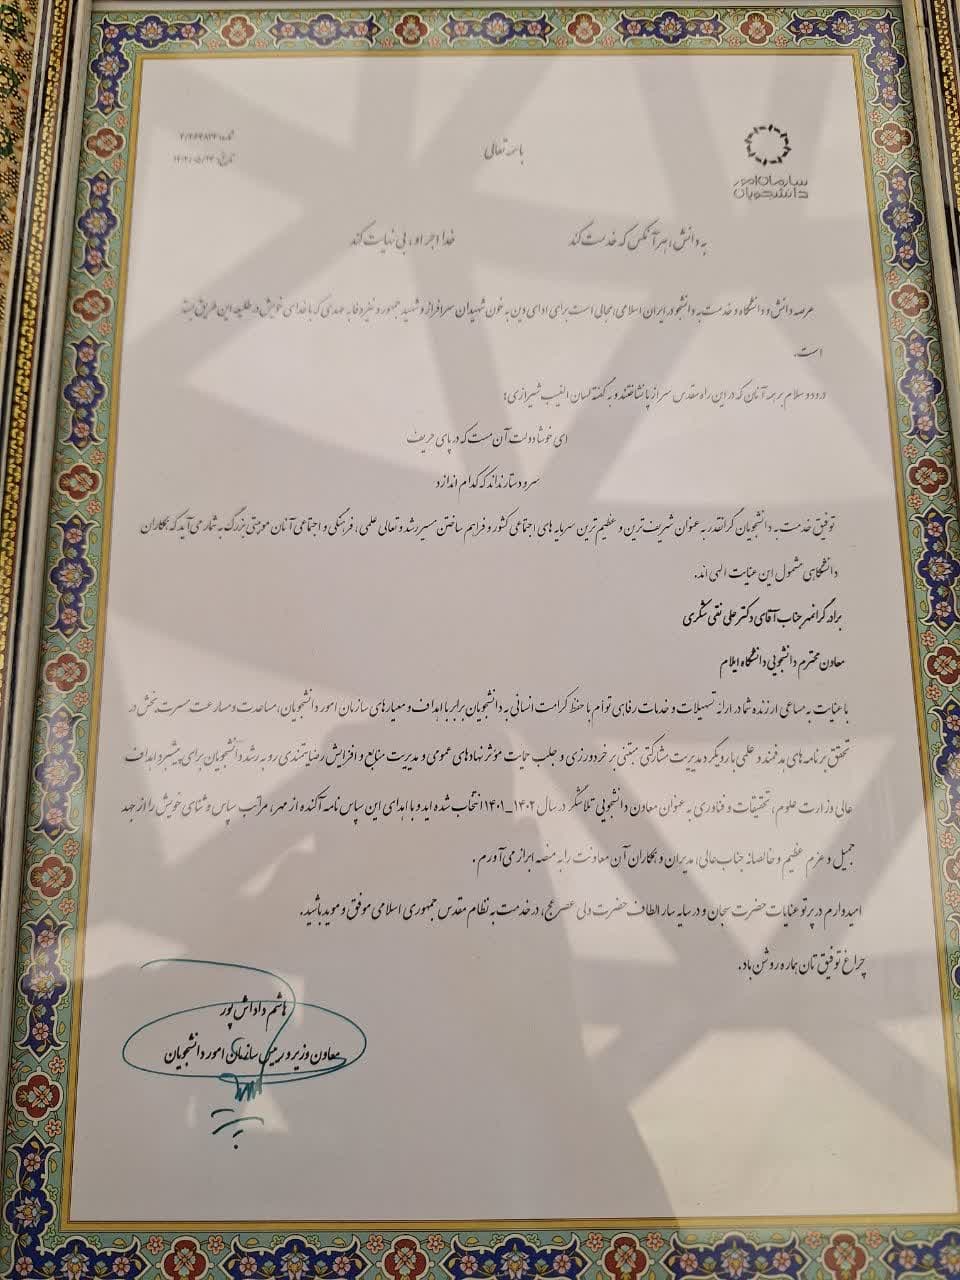 سازمان امور
دانشجویان
باسمه تعالی
شماره: ۲/۲۶۹۸۳۴
تاریخ: ۱۴۰۲/۰۵/۲۴
به دانش، هر آنکس که خدمت کند
خدا اجر او، بی نهایت کند
عرصه دانش و دانشگاه و خدمت به دانشجو در ایران اسلامی، مجالی است برای ادای دین به خون شهیدان سرافراز و شهید جمهور و نیز وفا به عهدی که با خدای خویش در طلیعه این طریق بسته
است.
درود و سلام بر همه آنان که در این راه مقدس سر از پا نشناختند و به گفته لسان الغیب شیرازی:
ای خوشا دولت آن مست که در پای حریف
سر و دستار نداند که کدام اندازد
توفیق خدمت به دانشجویان گرانقدر به عنوان شریف ترین و عظیم ترین سرمایه های اجتماعی کشور و فراهم ساختن مسیر رشد و تعالی علمی، فرهنگی و اجتماعی آنان موهبتی بزرگ به شمار می آید که همکاران
دانشگاهی مشمول این عنایت الهی اند.
برادر گرانمهر جناب آقای دکتر علی نقی شکری
معاون محترم دانشجویی دانشگاه ایلام
با عنایت به مساعی ارزنده شما در ارائه تسهیلات و خدمات رفاهی توام با حفظ کرامت انسانی به دانشجویان برابر با اهداف و معیارهای سازمان امور دانشجویان، مساعدت و مسارعت مسرت بخش در
تحقق برنامه های هدفمند و علمی با رویکرد مدیریت مشارکتی مبتنی بر خردورزی و جلب حمایت مؤثر نهادهای عمومی و مدیریت منابع و افزایش رضایتمندی رو به رشد دانشجویان برای پیشبرد اهداف
عالی وزارت علوم، تحقیقات و فناوری به عنوان معاون دانشجویی تلاشگر در سال ۱۴۰۲_۱۴۰۱ انتخاب شده اید و با اهدای این سپاس نامه آکنده از مهر، مراتب سپاس و ثنای خویش را از جهد
جمیل و عزم عظیم و خالصانه جناب عالی، مدیران و همکاران آن معاونت را به منصه ابراز می آورم.
امیدوارم در پرتو عنایات حضرت سبحان و در سایه سار الطاف حضرت ولی عصر عج، در خدمت به نظام مقدس جمهوری اسلامی موفق و موید باشید.
چراغ توفیق تان هماره روشن باد.
هاشم داداش پور
معاون وزیر و رییس سازمان امور دانشجویان